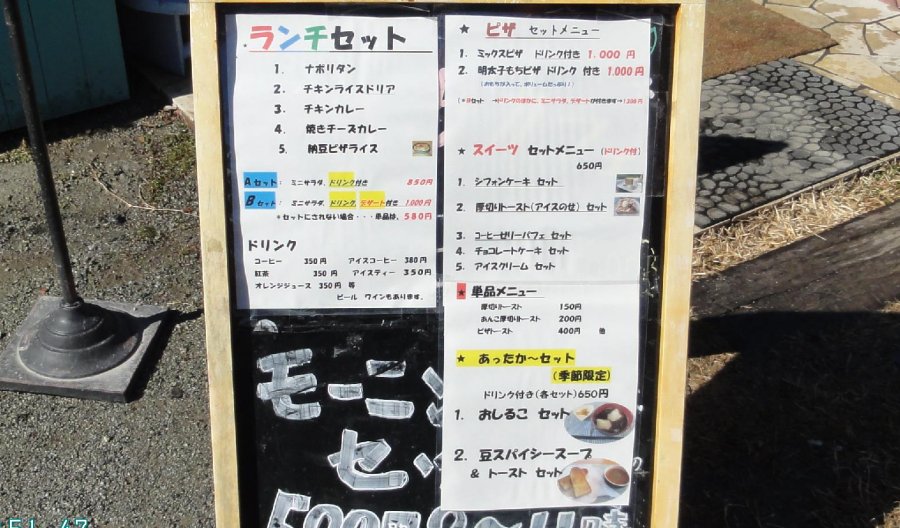 ランチセット
1. ナポリタン
2. チキンライスドリア
3. チキンカレー
4. 焼きチーズカレー
5. 納豆ピザライス
Aセット: ミニサラダ、ドリンク付き 850円
Bセット: ミニサラダ、ドリンク、デザート付き 1,000円
*セットにされない場合・・・単品は、580円
ドリンク
コーヒー 350円 アイスコーヒー 380円
紅茶 350円 アイスティー 350円
オレンジジュース 350円 等
ビール ワインもあります。
モーニン
セッ
★ ピザ セットメニュー
1. ミックスピザ ドリンク付き 1,000円
2. 明太子もちピザ ドリンク 付き 1,000円
(おもちが入って、ボリュームたっぷり!)
(*Bセット →ドリンクのほかに、ミニサラダ、デザートが付きます→1200円
★ スイーツ セットメニュー (ドリンク付)
650円
1. シフォンケーキ セット
2. 厚切りトースト(アイスのせ) セット
3. コーヒーゼリーパフェ セット
4. チョコレートケーキ セット
5. アイスクリーム セット
★ 単品メニュー
厚切りトースト 150円
あんこ厚切りトースト 200円
ピザトースト 400円 他
★ あったか〜セット
(季節限定)
ドリンク付き(各セット)650円
1. おしるこ セット
2. 豆スパイシースープ
& トースト セット